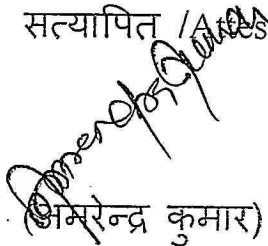 सत्यापित /Attes
(अमरेन्द्र कुमार)